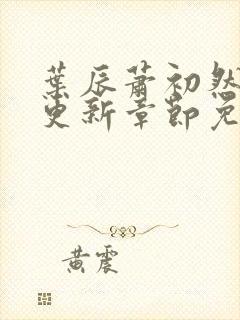 葉辰蕭初然
更新章節免
黃震